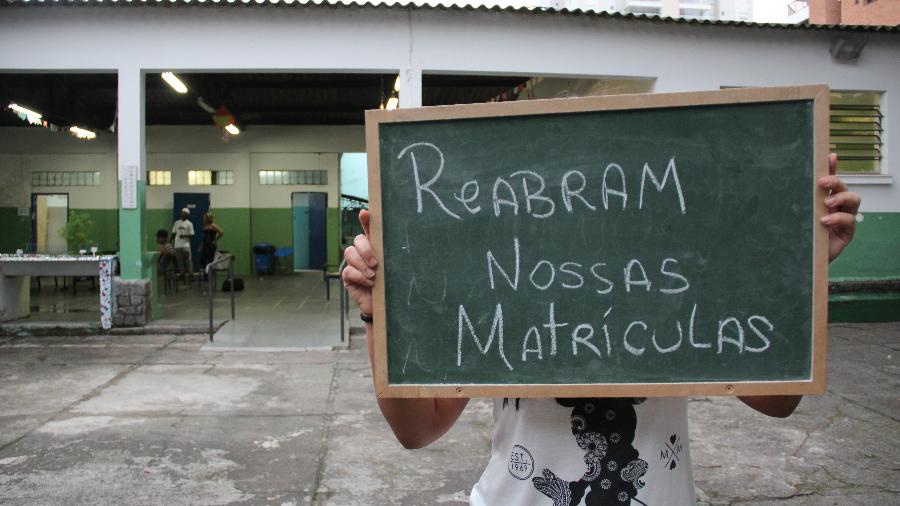 ReABRAM
NOSSAS
MAtRíCULAS
EST.
1969
M M